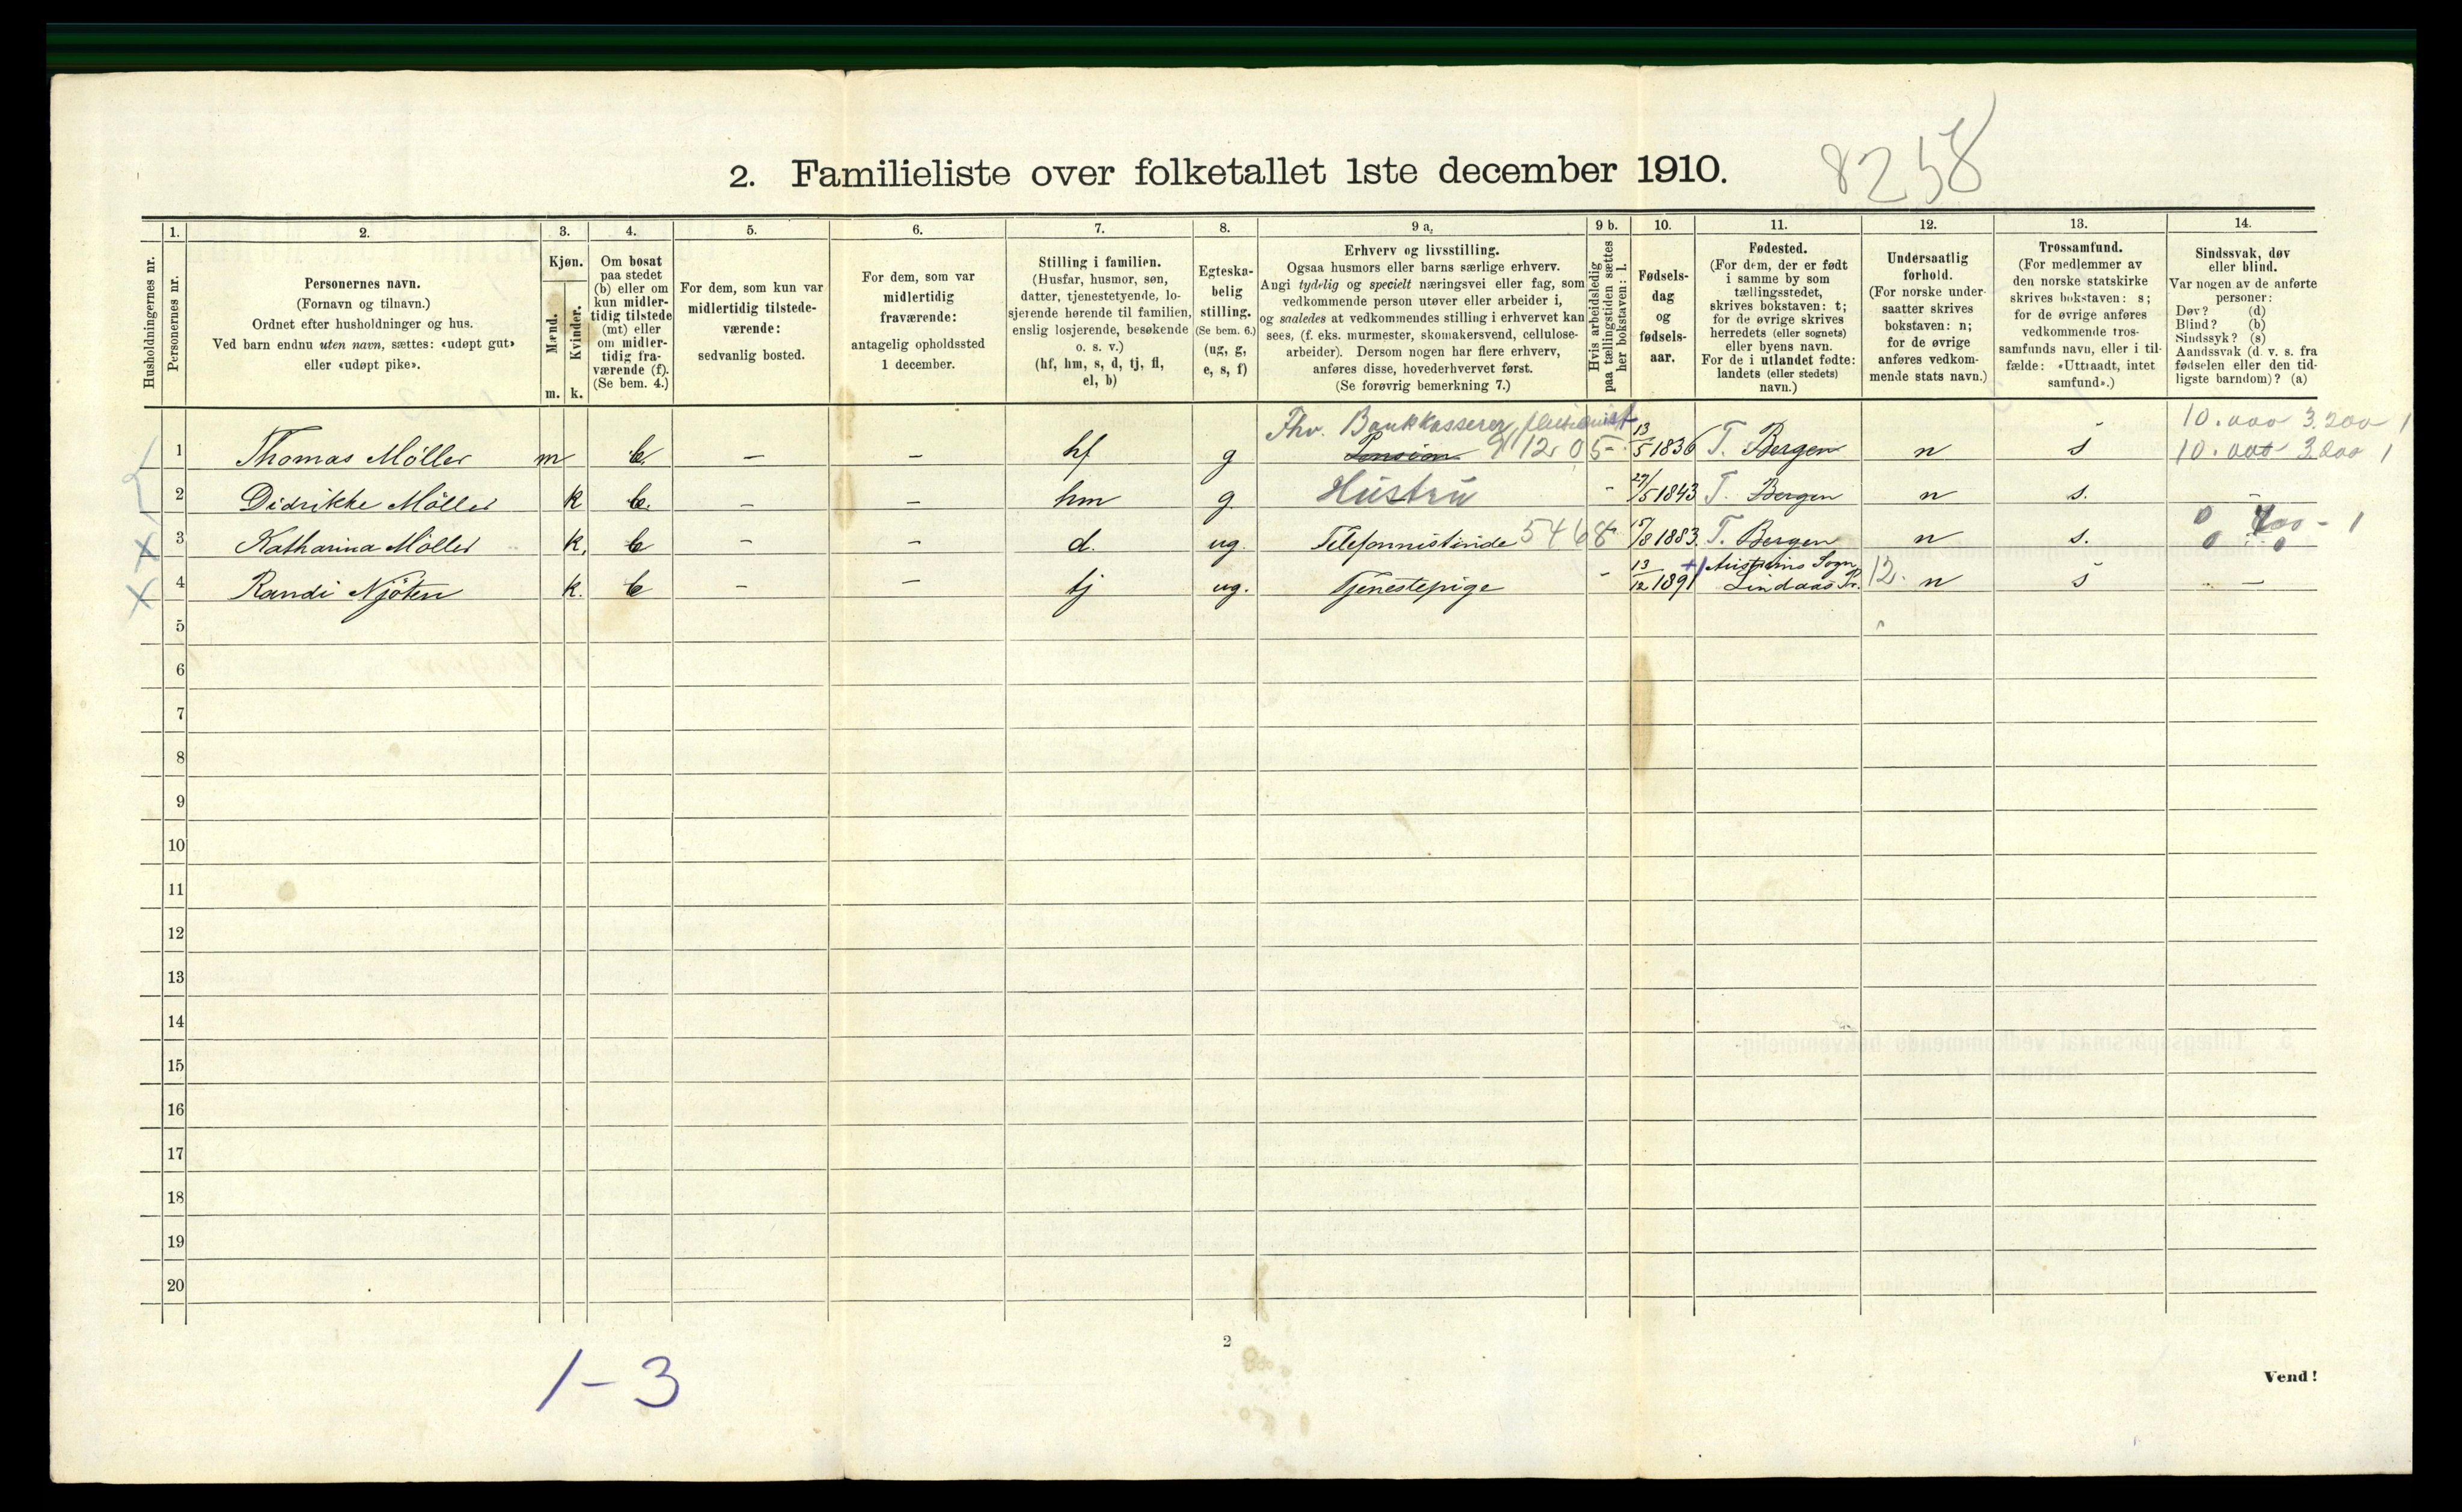 2. Familieliste over folketallet 1ste december 1910.
8258
1. 2. 3. 4. 5. 6. 7. 8. 9 a. 9 b. 10. 11. 12. 13. 14.
Husholdningernes nr.
Personernes nr.
Personernes navn.
(Fornavn og tilnavn.)
Ordnet efter husholdninger og hus.
Ved barn endnu uten navn, sættes: «udøpt gut»
eller «udøpt pike».
Kjøn.
Mænd.
Kvinder.
m. k.
Om bosat
paa stedet
(b) eller om
kun midler-
tidig tilstede
(mt) eller
om midler-
tidig fra-
værende (f).
(Se bem. 4.)
For dem, som kun var
midlertidig tilstede-
værende:
sedvanlig bosted.
For dem, som var
midlertidig
fraværende:
antagelig opholdssted
1 december.
Stilling i familien.
(Husfar, husmor, søn,
datter, tjenestetyende, lo-
sjerende hørende til familien,
enslig losjerende, besøkende
o. s. v.)
(hf, hm, s, d, tj, fl,
el, b)
Egteska-
belig
stilling.
(Se bem. 6.)
(ug, g,
e, s, f)
Erhverv og livsstilling.
Ogsaa husmors eller barns særlige erhverv.
Angi tydelig og specielt næringsvei eller fag, som
vedkommende person utøver eller arbeider i,
og saaledes at vedkommendes stilling i erhvervet kan
sees, (f. eks. murmester, skomakersvend, cellulose-
arbeider). Dersom nogen har flere erhverv,
anføres disse, hovederhvervet først.
(Se forøvrig bemerkning 7.)
Hvis arbeidsledig
paa tællingstiden sættes
her bokstaven: l.
Fødsels-
dag
og
fødsels-
aar.
Fødested.
(For dem, der er født
i samme by som
tællingsstedet,
skrives bokstaven: t;
for de øvrige skrives
herredets (eller sognets)
eller byens navn.
For de i utlandet fødte:
landets (eller stedets)
navn.)
Undersaatlig
forhold.
(For norske under-
saatter skrives
bokstaven: n;
for de øvrige
anføres vedkom-
mende stats navn.)
Trossamfund.
(For medlemmer av
den norske statskirke
skrives bokstaven: s;
for de øvrige anføres
vedkommende tros-
samfunds navn, eller i til-
fælde: «Uttraadt, intet
samfund».)
Sindssvak, døv
eller blind.
Var nogen av de anførte
personer:
Døv? (d)
Blind? (b)
Sindssyk? (s)
Aandssvak (d. v. s. fra
fødselen eller den tid-
ligste barndom)? (a)
Fhv. Bankkasserer, 10.000 3.200 1
1 Thomas Möller m b. – – hf g Pension 91205 – 13/5 1836 T. Bergen n s 10.000 3.000 1
2 Didrikke Möller k b. – – hm g. Hustru – 27/5 1843 T. Bergen n s. –
0 400 – 1
X 3 Katharina Möller k. b – – d. ug. Telefonistinde 5468 15/8 1883. T. Bergen n s. 0 0
Sogn
X 4 Randi Njöten k. b – – tj ug. Tjenestepige – 13/12 1891 Lindaas Pr. 12. n s –
5
6
7
8
9
10
11
12
13
14
15
16
17
18
19
20
2
1–3
Vend!